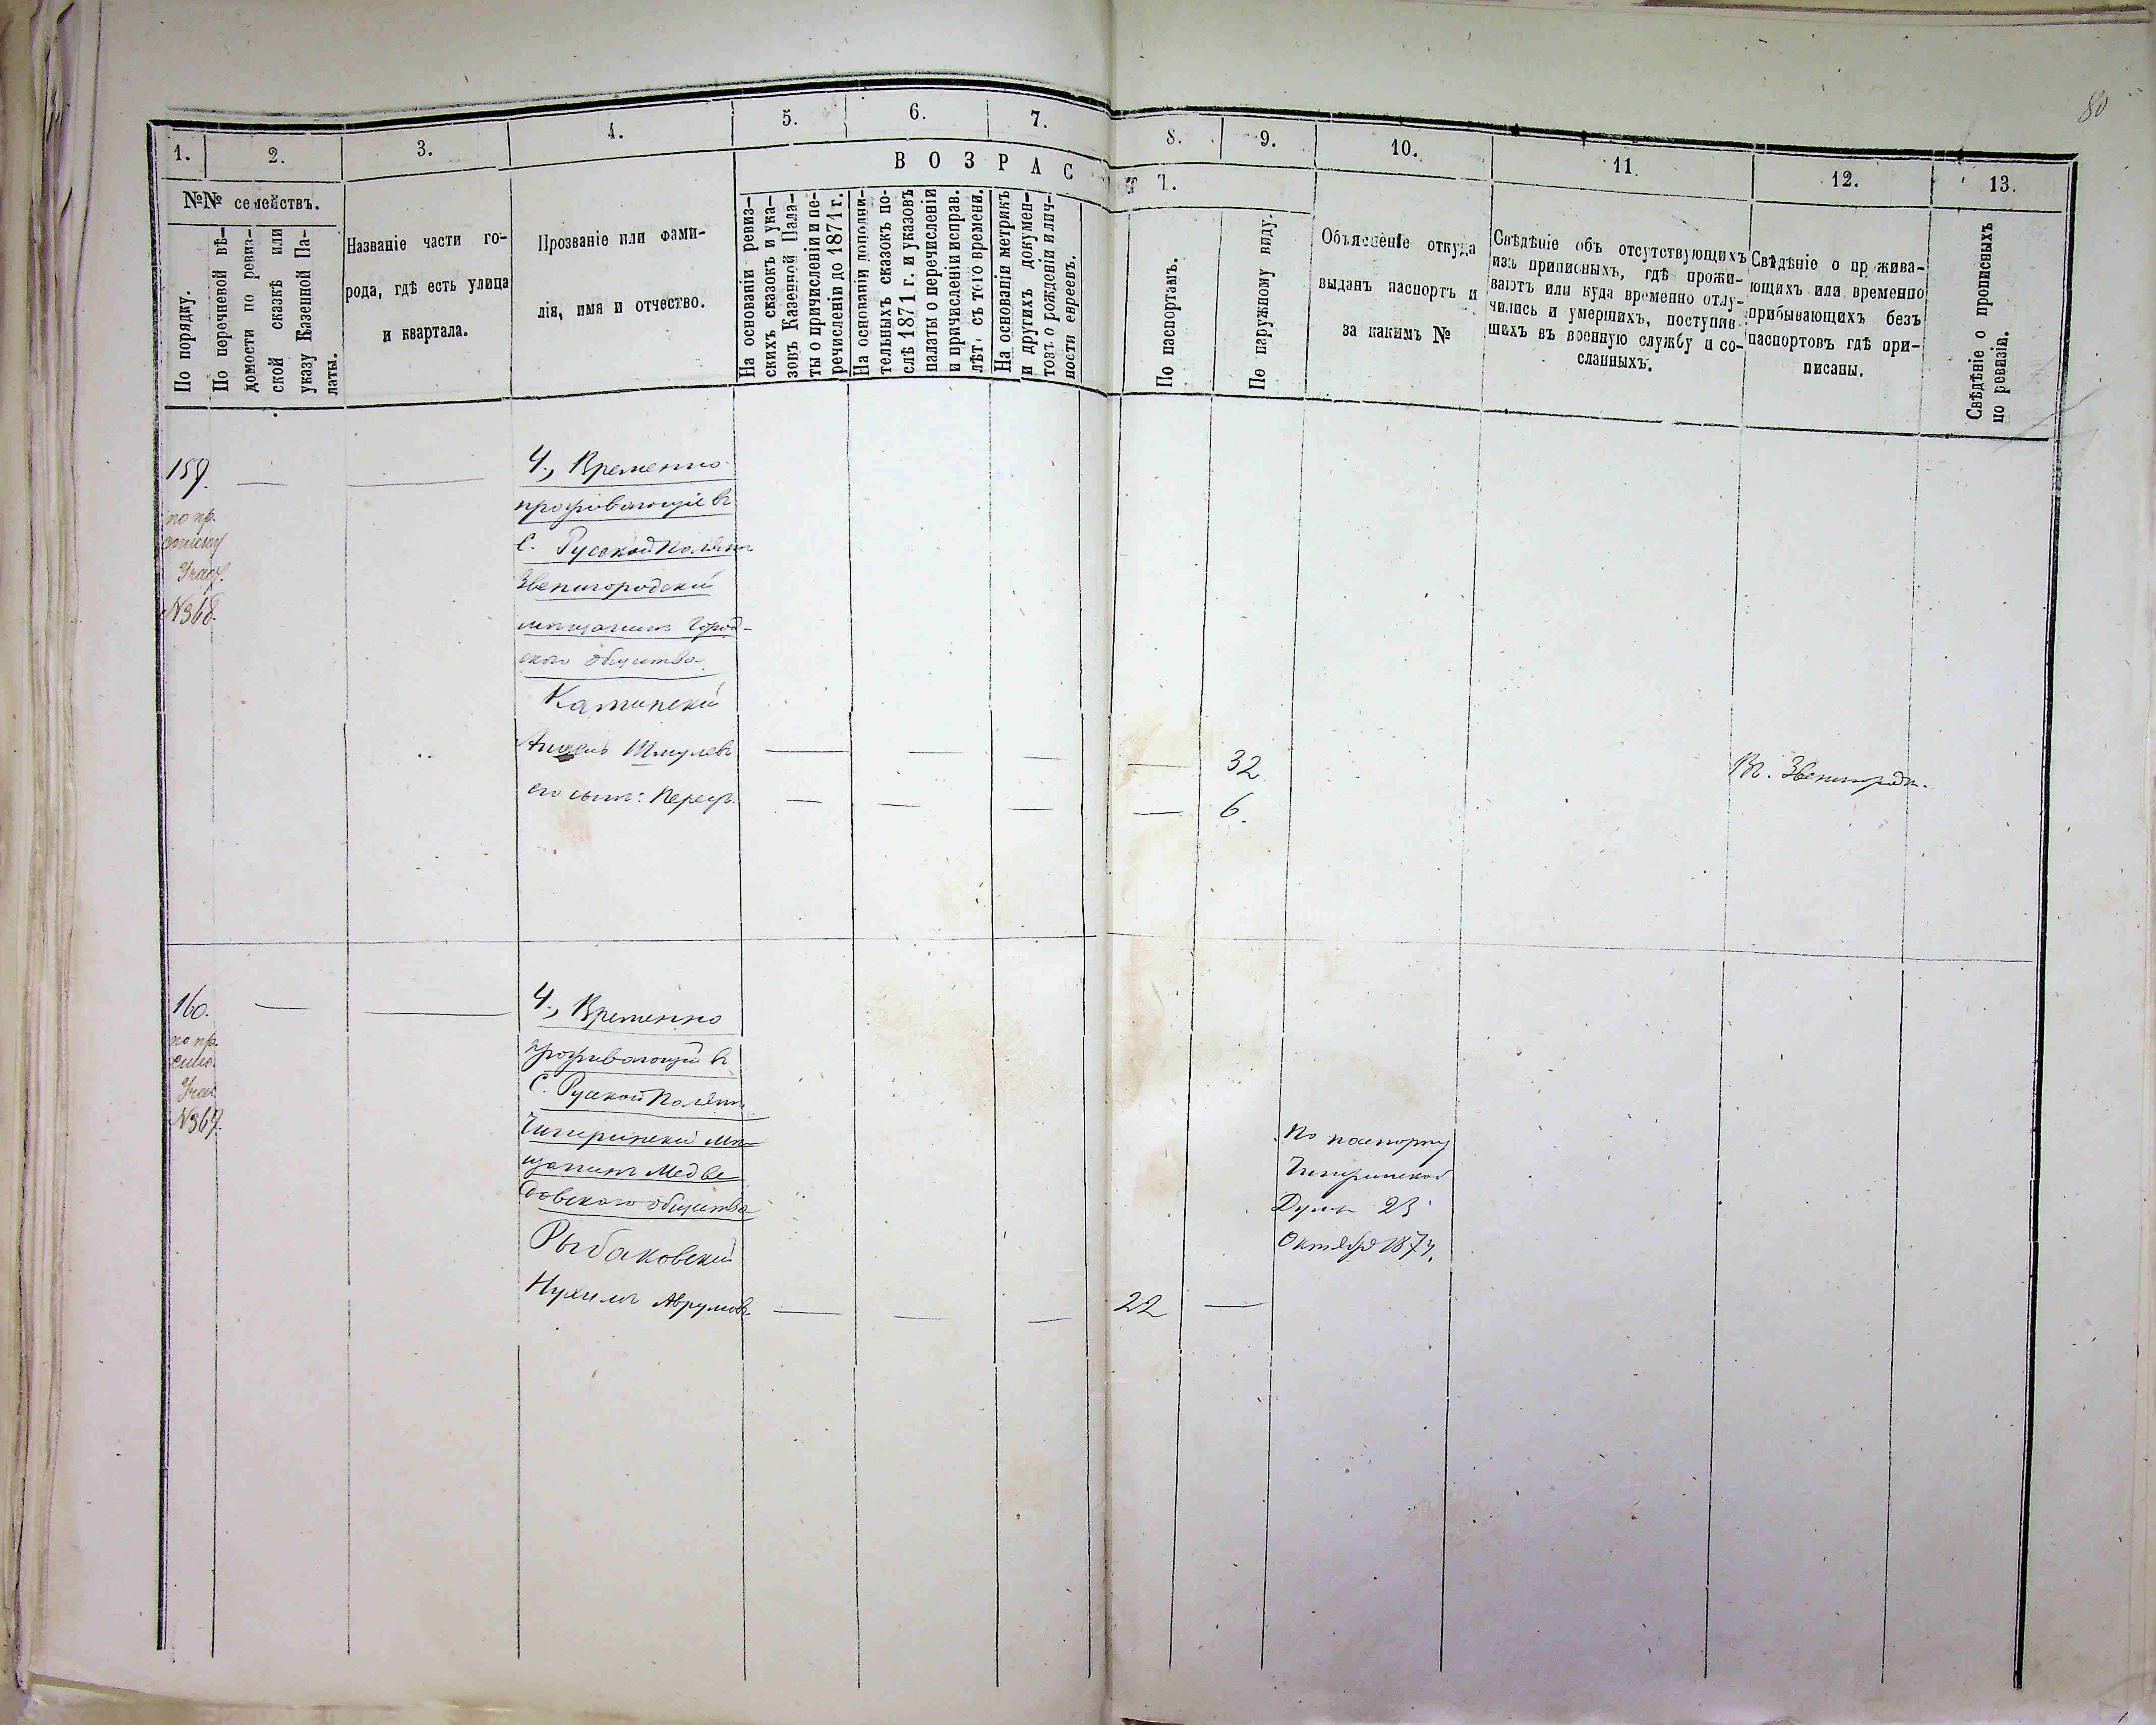 80
1. 2. 3. 4. 5. 6. 7. 8. 9. 10. 11. 12. 13.
№№ семействъ.
По порядку.
По перечневой вѣ-
домости по ревиз-
ской сказкѣ или
указу Казенной Па-
латы.
Названіе части го-
рода, гдѣ есть улица
и квартала.
Прозваніе или фами-
лія, имя и отчество.
ВОЗРАСТЪ.
На основаніи ревиз-
скихъ сказокъ и ука-
зовъ Казенной Пала-
ты о причисленіи и пе-
речисленіи до 1871 г.
На основаніи дополни-
тельныхъ сказокъ по-
слѣ 1871 г. и указовъ
палаты о перечисленіи
и причисленіи исправ.
лѣтъ съ того времени.
На основаніи метрикъ
и другихъ докумен-
товъ о рожденіи и лич-
ности евреевъ.
По паспортамъ.
По наружному виду.
Объясненіе откуда
выданъ паспортъ и
за какимъ №
Свѣдѣніе объ отсутствующихъ
изъ приписныхъ, гдѣ прожи-
ваютъ или куда временно отлу-
чились и умершихъ, поступив-
шихъ въ военную службу и со-
сланныхъ.
Свѣдѣніе о прожива-
ющихъ или временно
прибывающихъ безъ
паспортовъ гдѣ при-
писаны.
Свѣдѣніе о прописныхъ
по ревизіи.
159. — — 4., Временно
проживающіе въ
С. Русской Полянѣ
Звенигородскій
мѣщанинъ Город-
ского общества
по пр.
списку
№368.
Каминскій
Шмулевъ — — — — 32 Въ г. Звенигородкѣ.
его сынъ: Перецъ. — — — — 6.
160. — — 4., Временно
проживающій въ
С. Русской Полянѣ
Чигиринскій мѣ-
щанинъ Медве-
довского общества
по пр.
№369.
Рыбаковскій
Нухимъ Аврумовъ — — — 22 —
По паспорту
Чигиринской
Думы 23
Октября 1874.